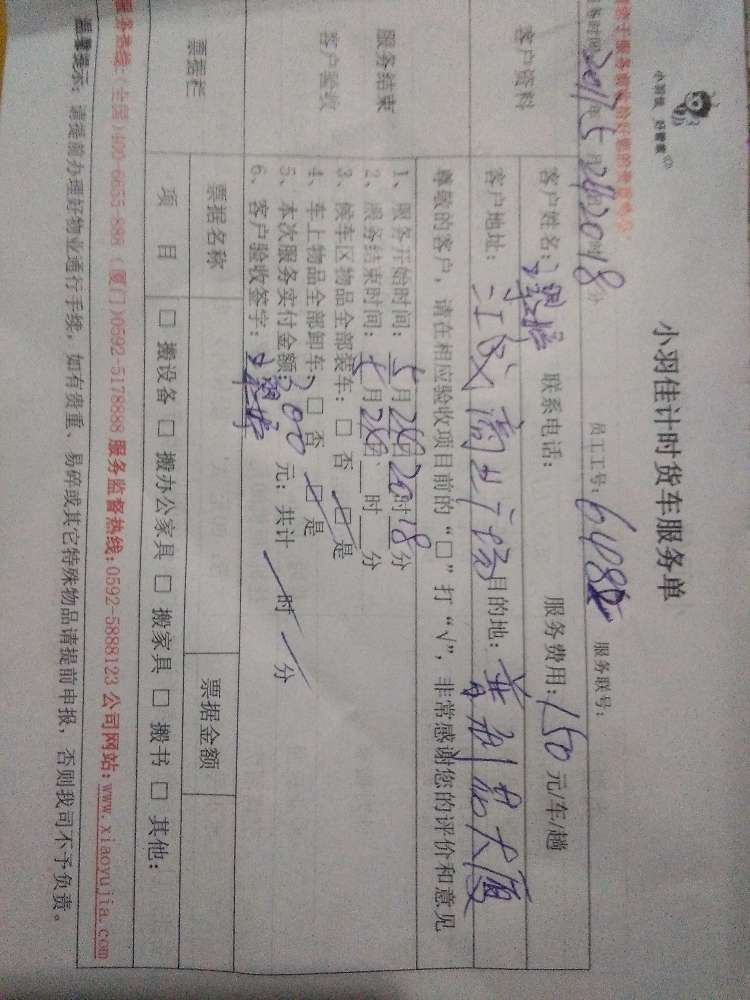 小羽佳 好管家
小羽佳计时货车服务单
服务时间:2017年5月24日20时18分 员工工号: 服务联号:
客户资料
客户姓名: 联系电话: 服务费用:150元/车/趟
客户地址: 江成商业广场 目的地: 普利思大厦
尊敬的客户,请在相应验收项目前的“□”打“√”,非常感谢您的评价和意见
服务结束
客户验收
1、服务开始时间:5月24日20时18分
2、服务结束时间: 月 日 时 分
3、候车区物品全部装车:□否 □是
4、车上物品全部卸车:□否 □是
5、本次服务实付金额:300元;共计 时 分
6、客户验收签字:
票据栏 票据名称 票据金额
项目 □搬设备 □搬办公家具 □搬家具 □搬书 □其他:
服务热线:(全国)400-6655-888 (厦门)0592-5178888 服务监督热线:0592-5888123 公司网站:www.xiaoyujia.com
温馨提示:请提前办理好物业通行手续,如有贵重、易碎或其它特殊物品请提前申报,否则我司不予负责。